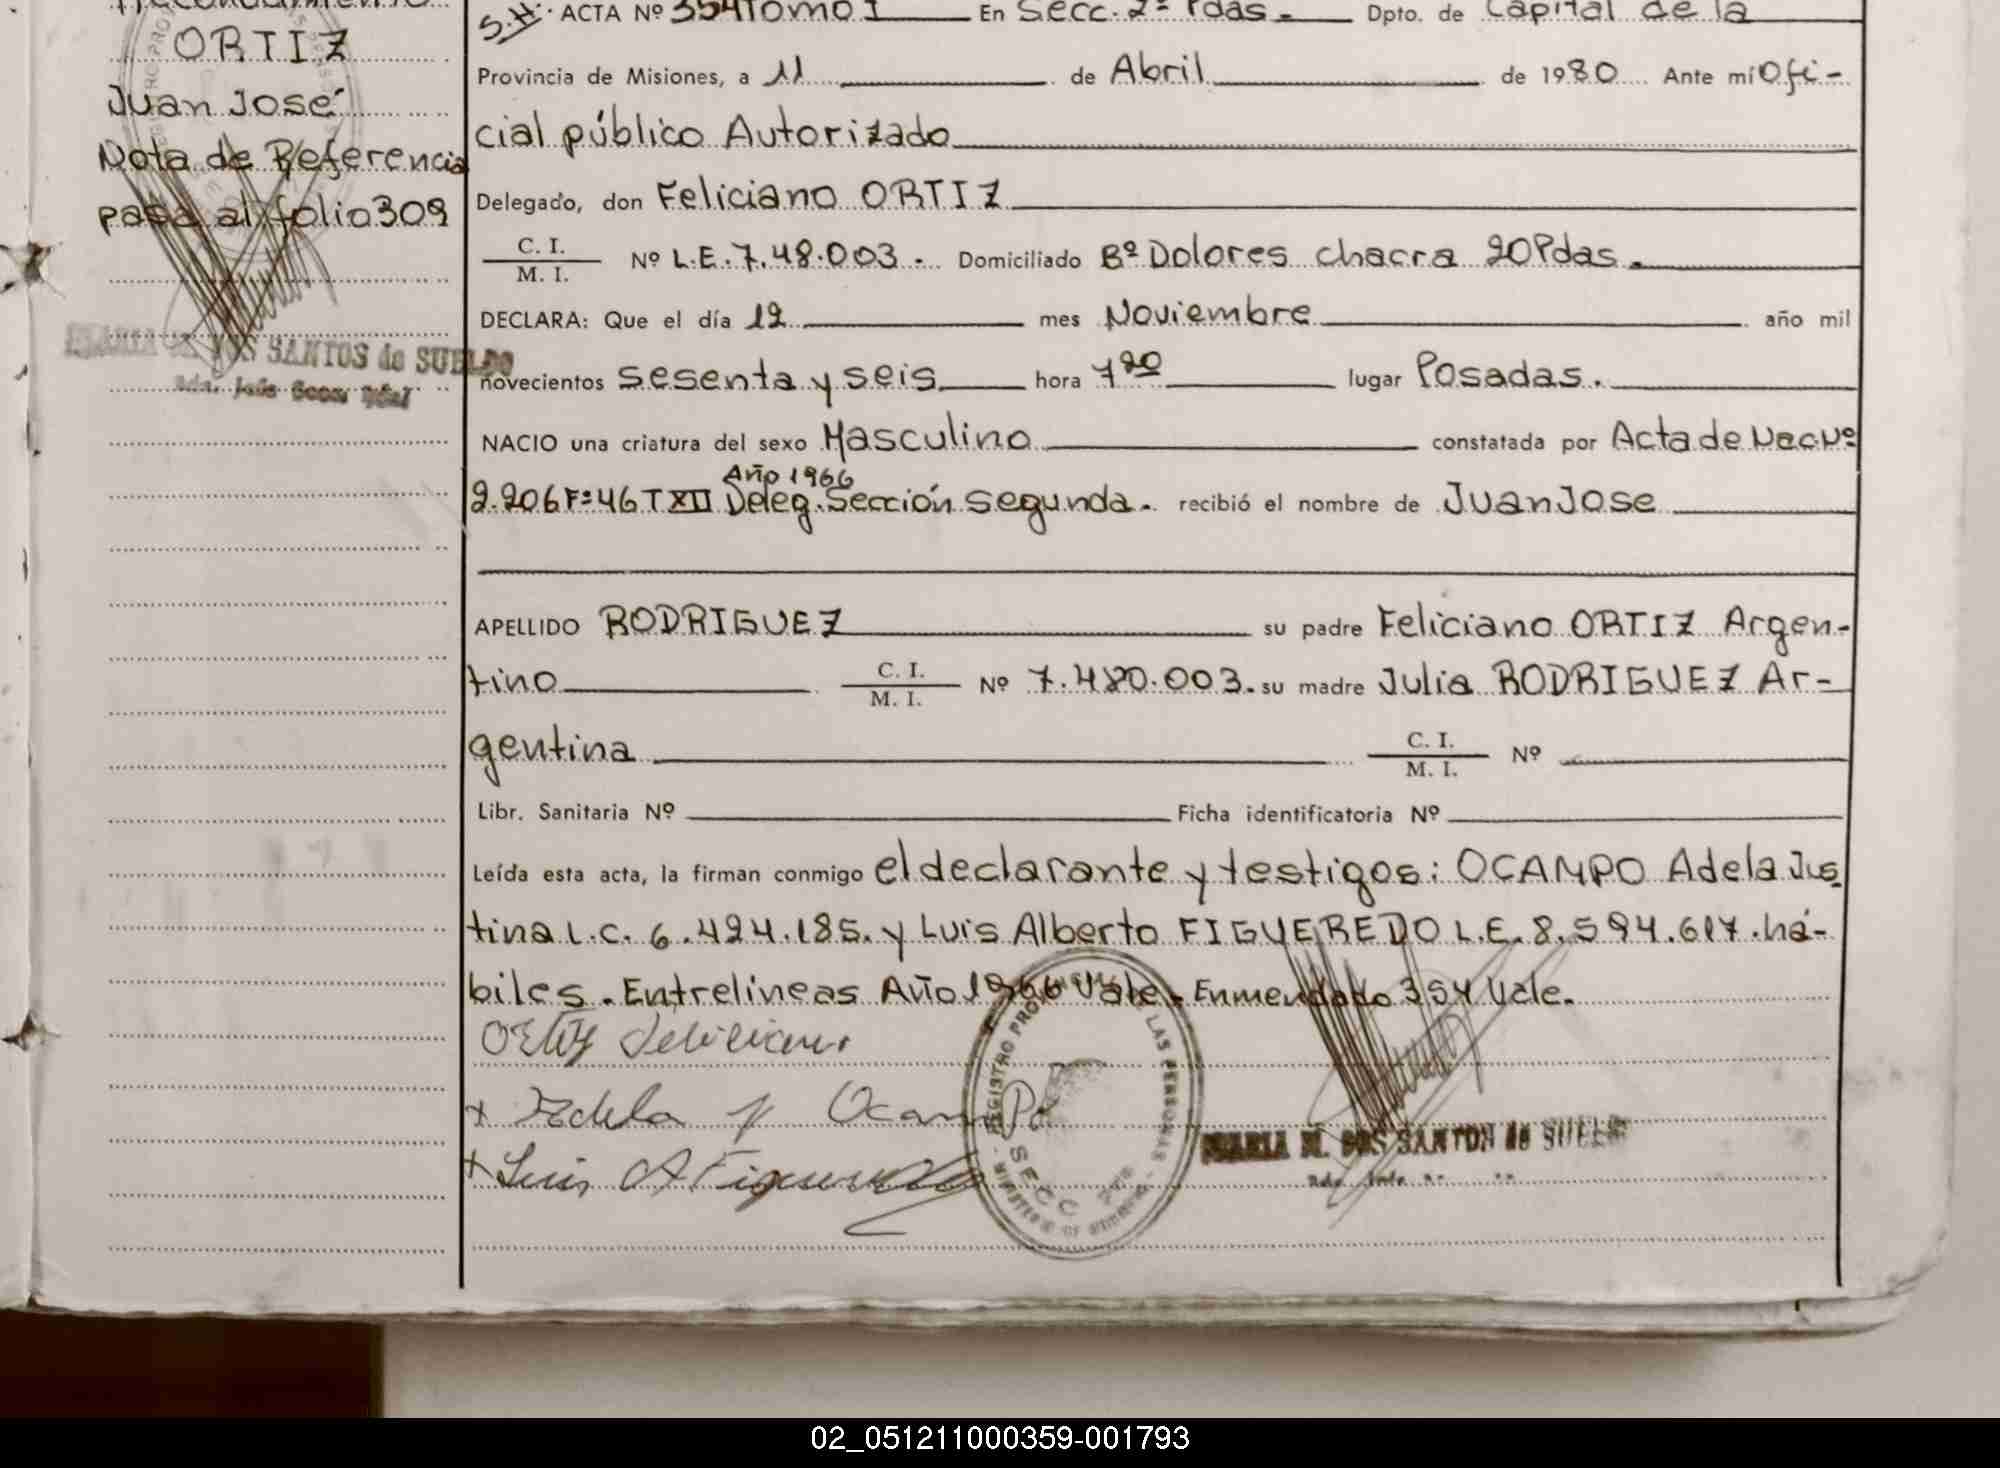 ORTIZ
Juan José
Nota de Referencia
pasa al folio 309
MARIA M. DOS SANTOS de SUELDO
S.H. ACTA Nº 354 Tomo I En Secc. 2ª Pdas. Dpto. de Capital de la
Provincia de Misiones, a 11 de Abril de 1980 Ante mí Ofi-
cial público Autorizado
Delegado, don Feliciano ORTIZ
C. I.
M. I. Nº L.E. 7.48.003. Domiciliado Bº Dolores chacra 20 Pdas.
DECLARA: Que el día 12 mes Noviembre año mil
novecientos sesenta y seis hora 7 20 lugar Posadas.
NACIO una criatura del sexo Masculino constatada por Acta de Nac. Nº
Año 1966
2.206 Fº 46 T XII Deleg. Sección segunda. recibió el nombre de Juan Jose
APELLIDO RODRIGUEZ su padre Feliciano ORTIZ Argen-
tino C. I.
M. I. Nº 7.480.003. su madre Julia RODRIGUEZ Ar-
gentina C. I.
M. I. Nº
Libr. Sanitaria Nº Ficha identificatoria Nº
Leída esta acta, la firman conmigo el declarante y testigos: OCAMPO Adela Jus
tina L.C. 6.424.185. y Luis Alberto FIGUEREDO L.E. 8.594.617. há-
biles. Entrelineas Año 1966 Vale. Enmendado 354 Vale.
Ortiz Feliciano
x Adela J Ocampo
x Luis A Figueredo
REGISTRO PROV DE LAS PERSONAS
SECC 2da
MINISTERIO DE GOBIERNO
MARIA M. DOS SANTOS de SUELDO
02_051211000359-001793